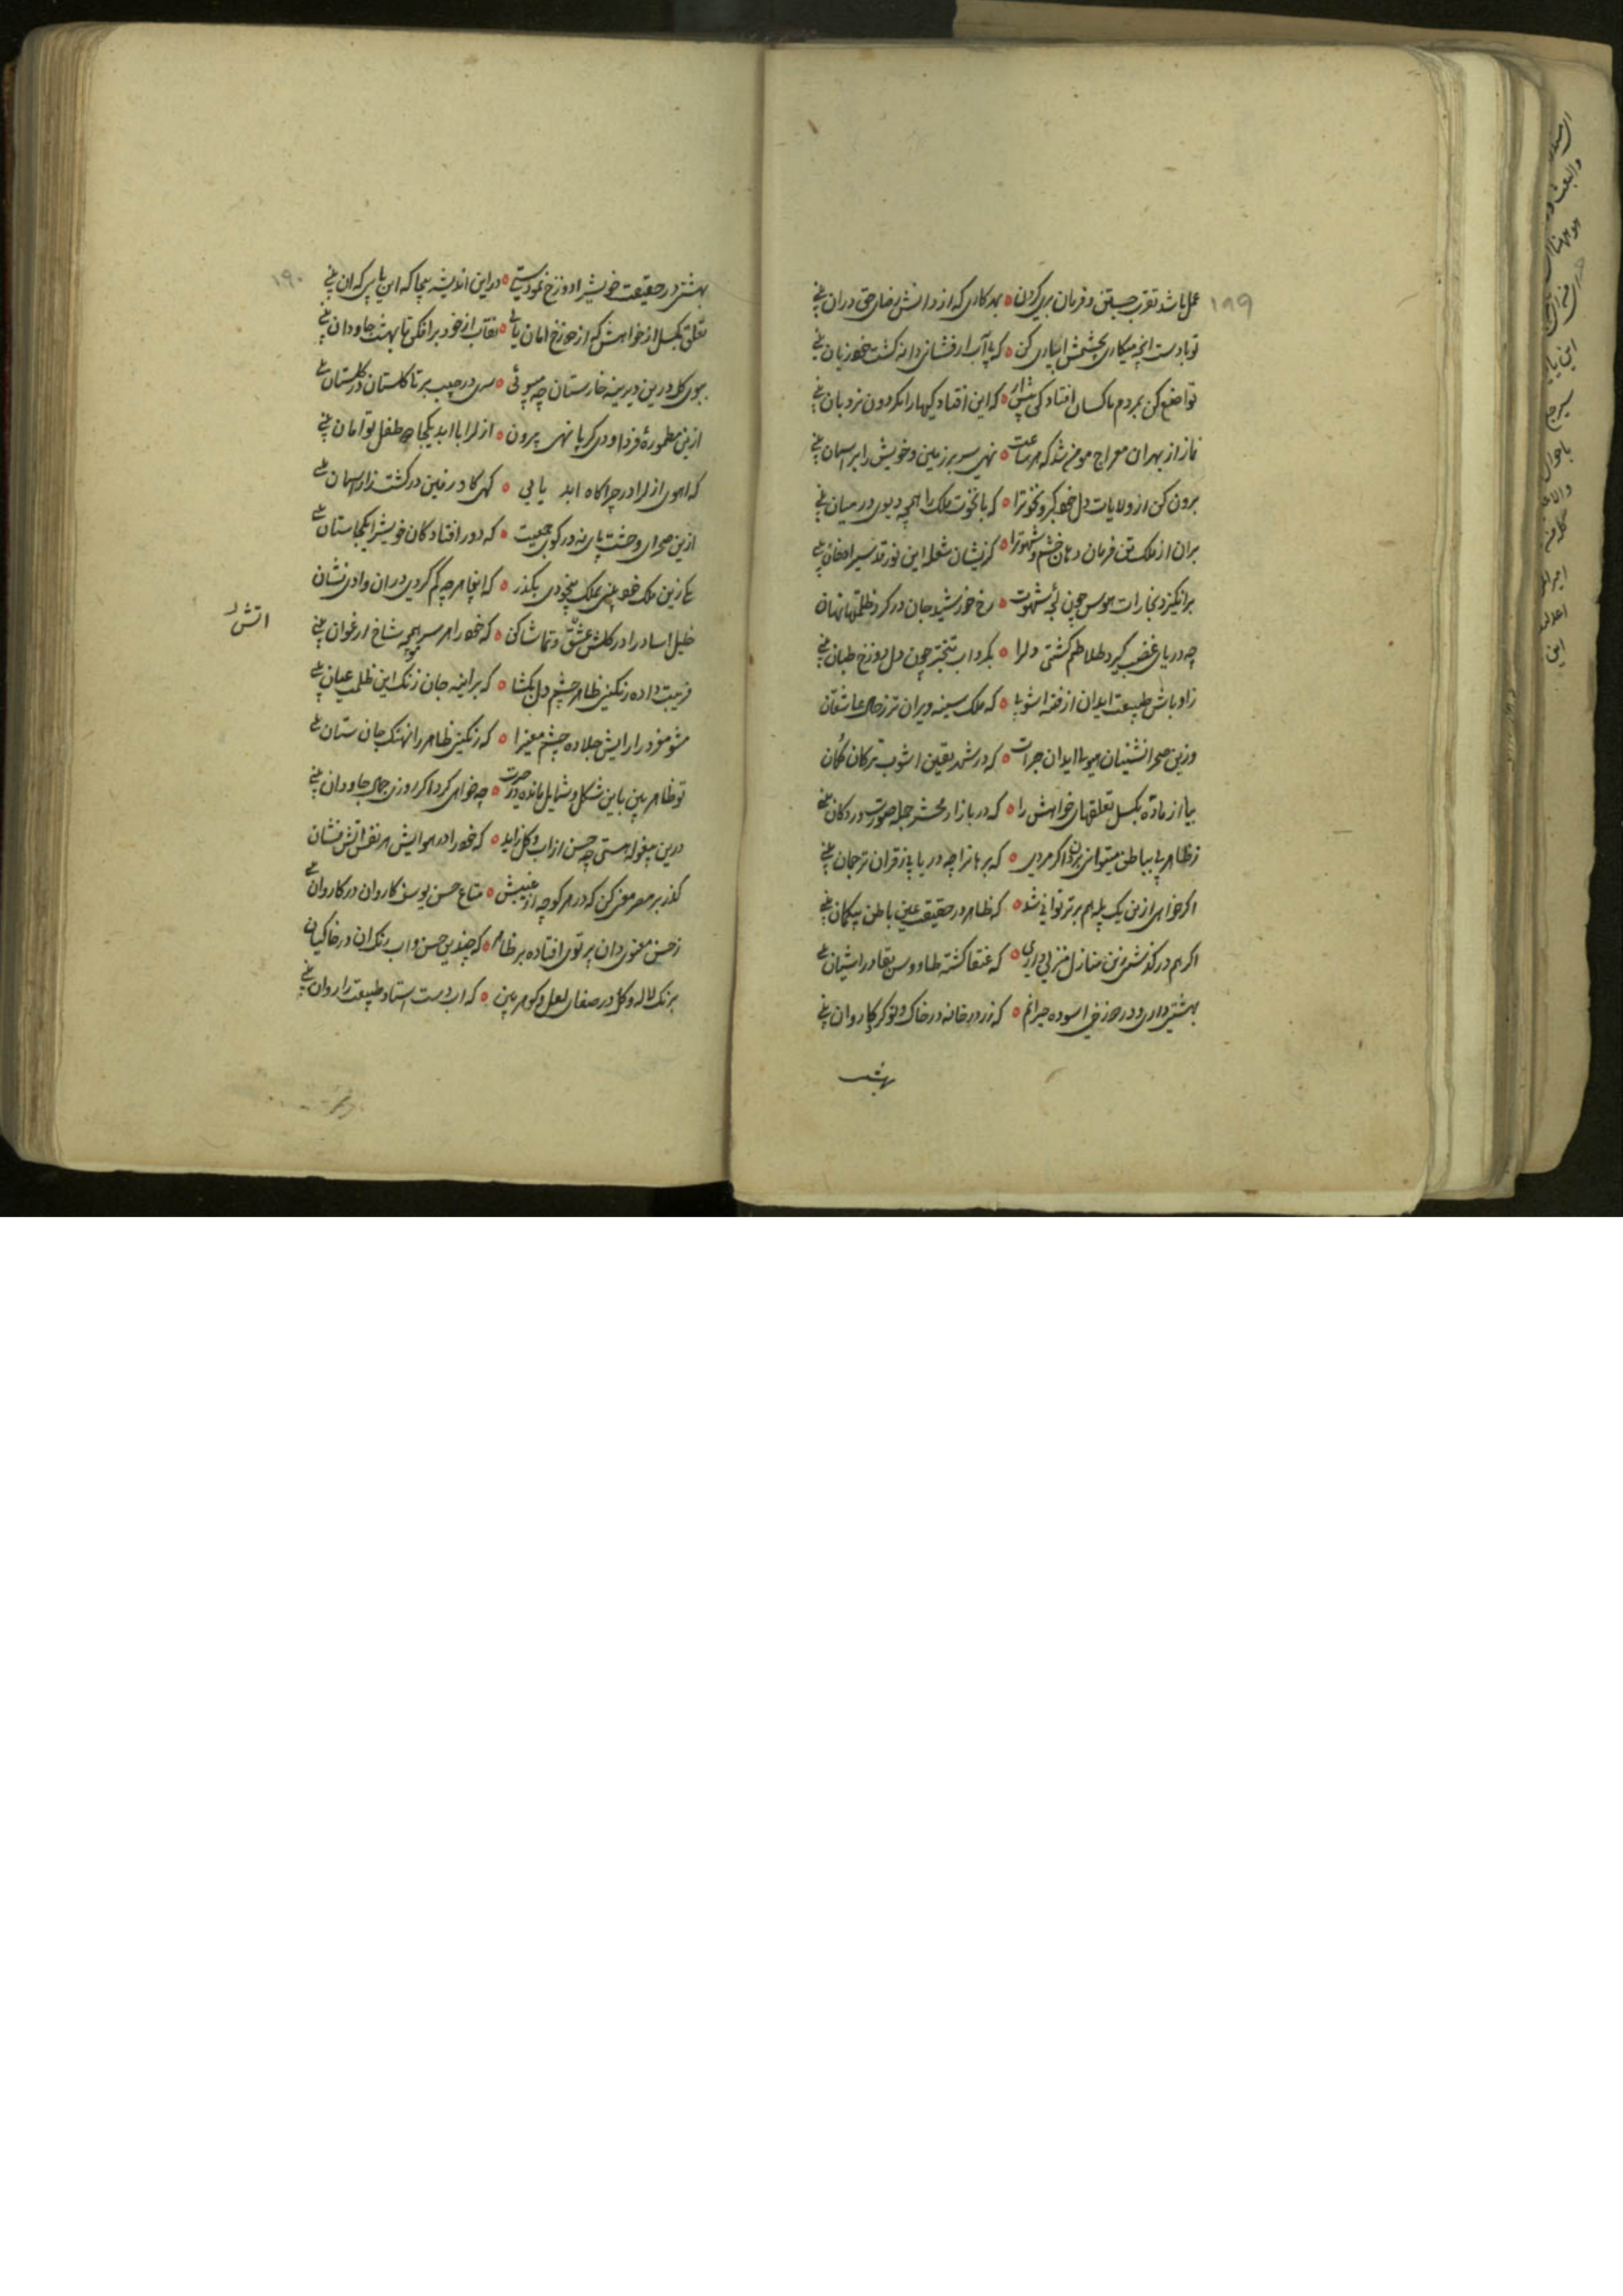 ۱۸۹
عمل باشد تقرب جستن و فرمان بری کردن ه بهر کاری که از دانش رضای حق دران بینی
تو با دست انچه میکاری بچشمش ابیاری کن ه که بی آب ار فشانی دانه کشت خود زیان بینی
تواضع کن بمردم باکسان افتادکی پیش ار ه که این افتادکیها را بکردون نردبان بینی
نماز از بهر ان معراج مومن شد که هر ساعت ه نهی سر بر زمین و خویش را بر اسمان بینی
برون کن از ولایات دل خود کبر و نخوت را ه که با نخوت ملک را همچه دیوی در میان بینی
بران از ملک تن فرمان دهان خشم و شهوت را ه کزیشان شعله این نور قدسیرا دخان بینی
برانکیزد بخارات هوس چون لجه شهوت ه رخ خورشید جان در کرد ظلمتها نهان
چه دریای غضب کیرد طلاطم کشتی دلرا ه بکرداب تبختر چون دل دوزخ طپان بینی
ز اوباش طبیعت ایدل ان از فتنه اشوبا ه که ملک سینه ویران تر ز حال عاشقان
وزین صحرا نشینان هیولا ایدل ان جرات ه که در شهر یقین اشوب ترکان کمان
بیا از ماده بکسل تعلقهای خواهش را ه که در بازار محشر جمله صورت در دکان بینی
ز ظاهر پی بباطن میتوانی بردن اکر مردی ه که برهانرا چه دریابی ز قران ترجمان بینی
اکر خواهی ازین یک پله هم برتر توانی شد ه که ظاهر در حقیقت عین باطن بیکمان بینی
اکر هم در کذشتی زین منازل منزلی داری ه که عنقا کشته طاووس بقا در اشیان بینی
بهشتی داری و در دوزخی اسوده حیرانم ه که زر در خانه در خاک و تو کرد کاروان بینی
بهشتی
۱۹۰
بهشتی در حقیقت خویشرا دوزخ نمودستی ه در این اندیشه بیجا که این یابی که ان بینی
تعلق بکسل از خواهش که از دوزخ امان یابی ه نقاب از خود برافکن تا بهشت جاودان بینی
ببوی کل درین دیرینه خارستان چه میپوئی ه سری در جیب بر تا کلستان در کلستان بینی
ازین مطموره فردا و دی کر پا نهی بیرون ه ازلرا با ابد یکجا چه طفل توامان بینی
که اهوی ازلرا در چراکاه ابد یابی ه کهی کاو زمین در کشت زار اسمان بینی
ازین صحرای وحشت پای نه در کوی جمعیت ه که دور افتادکان خویشرا یکجاستان بینی
یکی زین ملک خود بینی بملک بیخودی بکذر ه که اینجا هر چه کم کردی دران وادی نشان
خلیل اسا درا در کلشن عشق و تماشا کن ه که خود را هر سر مو همچه شاخ ارغوان بینی
اتش را
فریبت داده رنکینی ظاهر چشم دل بکشا ه که بر ایینه جان زنک این ظلمت عیان بینی
مشو مغرور ارایش جلا ده چشم معنیرا ه که رنکینی ظاهر را نهنک جان ستان بینی
تو ظاهر بین باین شکل و شمایل مانده در حیرت ه چه خواهی کرد اکر روزی جمال جاودان بینی
درین بیغوله هستی چه حسن از اب و کل زاید ه که خود را در هوایش هر نفس اتش فشان
کذر بر مصر معنی کن که در هر کوچه از غیبش ه متاع حسن یوسف کاروان در کاروان بینی
ز حسن معنوی دان پرتوی افتاده بر ظاهر ه که چندین حسن و اب رنک ان در خاکیان
برنک لاله و کل در صفای لعل و کوهر بین ه که اب دست استاد طبیعت را روان بینی